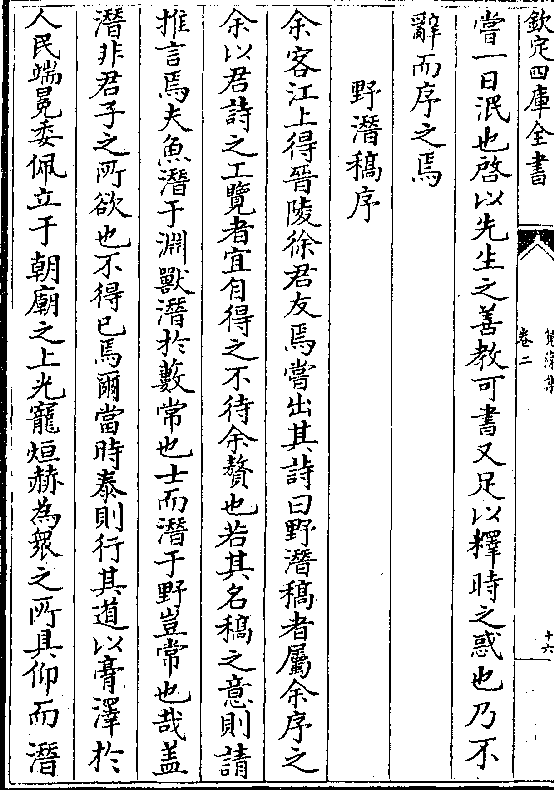 欽定四庫全書
卷二
十六
嘗一日泯也啓以先生之善教可書又足以釋時之惑也乃不
辭而序之焉
野潛稿序
余客江上得晉陵徐君友焉嘗出其詩曰野潛稿者屬余序之
余以君詩之工覽者宜自得之不待余贅也若其名稿之意則請
推言焉夫魚潛于淵獸潛於藪常也士而潛于野豈常也哉盖
潛非君子之所欲也不得已焉爾當時泰則行其道以膏澤於
人民端冕委佩立于朝廟之上光寵烜赫為衆之所具仰而潛